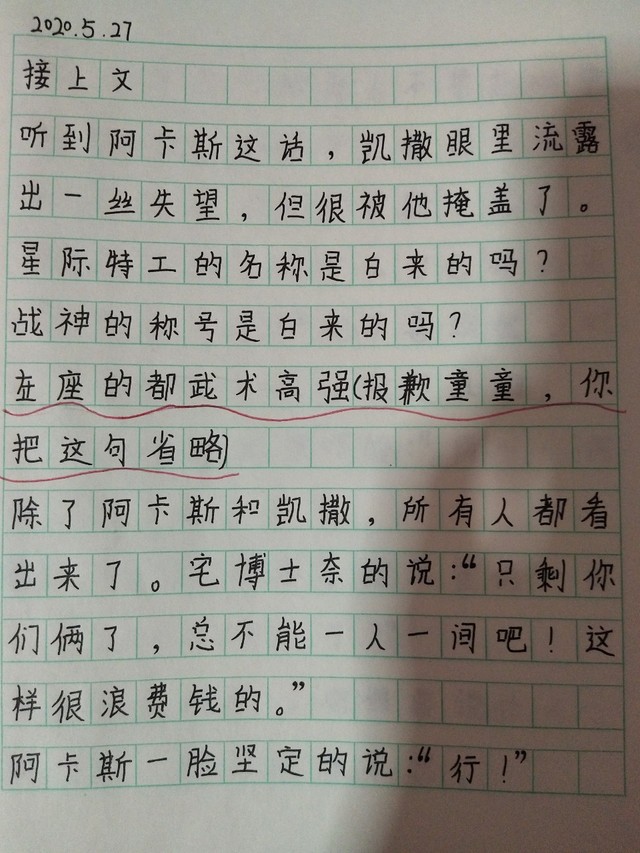 2020.5.27
接上文
听到阿卡斯这话，凯撒眼里流露
出一丝失望，但很被他掩盖了。
星际特工的名称是白来的吗？
战神的称号是白来的吗？
在座的都武术高强(报歉童童，你
把这句省略)
除了阿卡斯和凯撒，所有人都看
出来了。宅博士奈的说：“只剩你
们俩了，总不能一人一间吧！这
样很浪费钱的。”
阿卡斯一脸坚定的说：“行！”